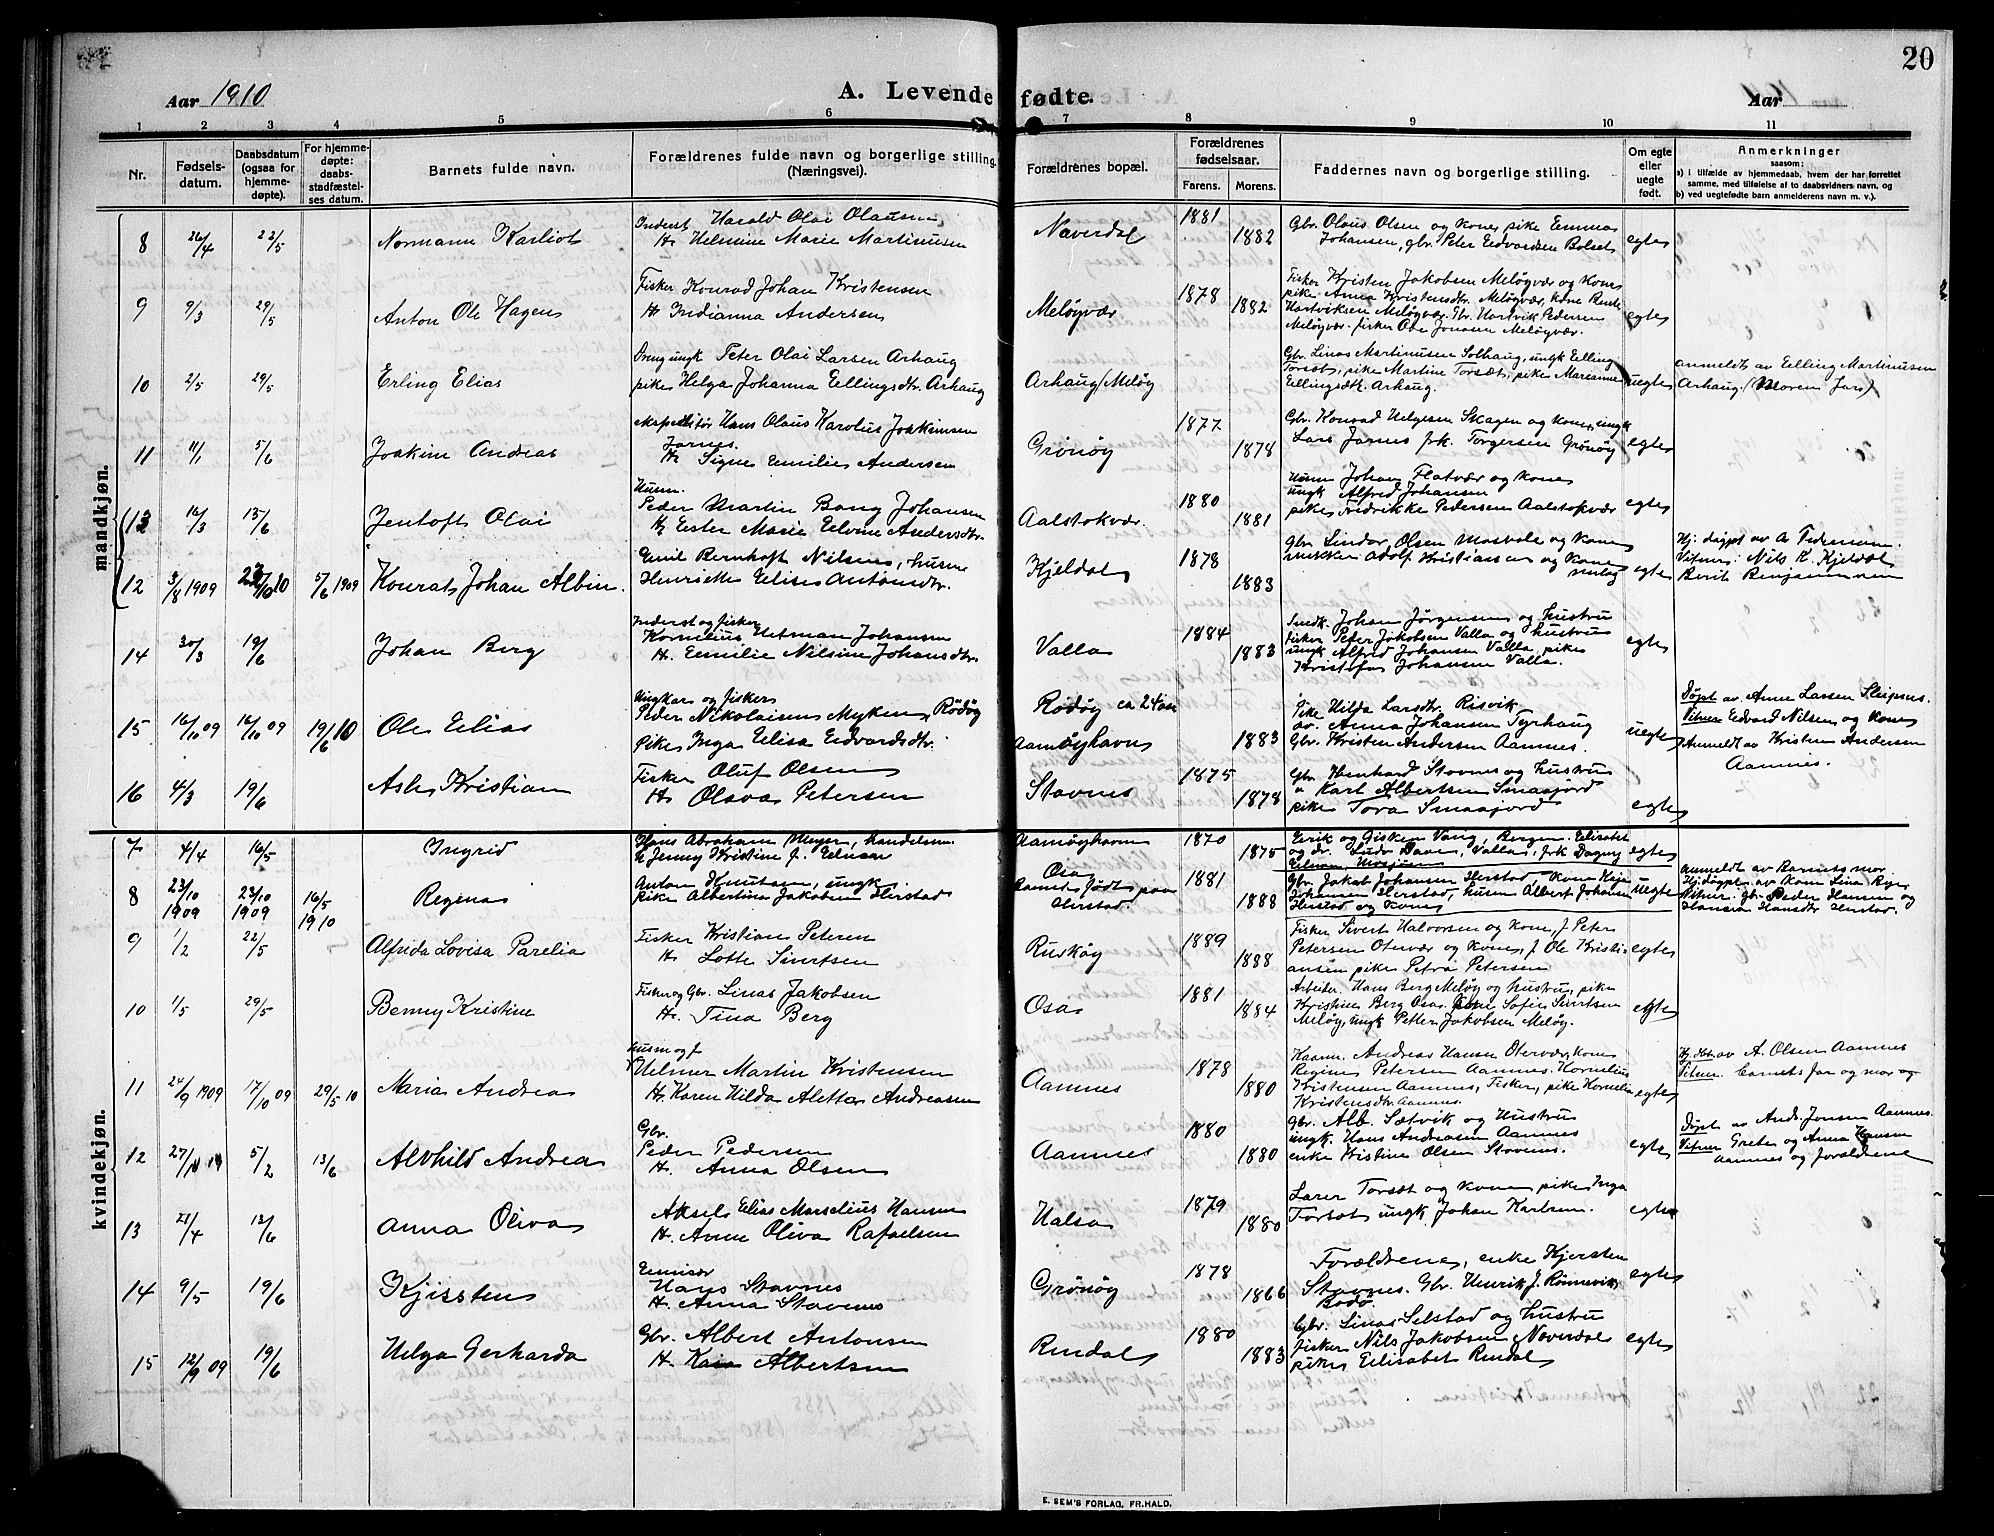 20
Aar 1910
A. Levende fødte.
Aar
1 2 3 4 5 6 7 8 9 10 11
Nr.
Fødsels-
datum.
Daabsdatum
(ogsaa for
hjemme-
døpte).
For hjemme-
døpte:
daabs-
stadfæstel-
ses datum.
Barnets fulde navn.
Forældrenes fulde navn og borgerlige stilling.
(Næringsvei).
Forældrenes bopæl.
Forældrenes
fødselsaar.
Farens. Morens.
Faddernes navn og borgerlige stilling.
Om egte
eller
uegte
født.
Anmerkninger
saasom:
a) i tilfælde av hjemmedaab, hvem der har forrettet
samme, med tilføielse af to daabsvidners navn, og
b) ved uegtefødte barn anmelderens navn m. v.).
mandkjøn.
8 26/4 22/5 Normann Karliot
Inderst Harald Olai Olausen
H. Helmine Marie Martinusen
Naverdal 1881 1882
Gbr. Olaus Olsen og kone, pike Emma
Johansen, gbr. Peter Edvardsen Bolset
egte
9 9/3 29/5 Anton Ole Hagen
Fisker Konrad Johan Kristensen
H. Indianna Andersen
Meløyvær 1878 1882
Fisker Kristen Jakobsen Meløyvær og kone
pike Anna Kristensdtr. Meløyvær, kone
Hartviksen Meløyvær. Gbr. Hartvik Pedersen
Meløyvær. fisker Ole Jonasen Meløyvær.
egte
10 2/5 29/5 Erling Elias
ungk Peter Olai Larsen Arhaug
pike Helga Johanna Ellingsdtr. Arhaug
Arhaug (Meløy
Gbr. Linas Martinusen Solhaug, ungk Elling
Torsæt, pike Martine Torsæt, pike Marianne
Ellingsdtr. Arhaug.
uegte
anmeldt av Elling Martinusen
Arhaug. (Morens far)
11 11/1 5/6 Joakim Andreas
Ekspeditør Hans Olaus Karolus Joakimsen
Jarnes.
H. Signe Emilie Andersen
Grønøy 1877 1878
Gbr. Konrad Helgesen Skagen og kone, ungk
Lars Jarnes frk. Torgersen Grønøy
egte
13 16/3 13/6 Jentoft Olai
Husm.
Peder Martin Bang Johansen
H. Ester Marie Elvine Andersdtr.
Aalstokvær. 1880 1881
Husm Johan Flatvær og kone
ungk Alfred Johansen
pike Fredrikke Pedersen Aalstokvær
egte
12 3/8 1909 10 5/6 1909 Konrat Johan Albin
Emil Bernhoft Nilsen, husm
Henriette Elise Antonsdtr.
Kjeldal 1878 1883
gbr Lindor Olsen Mosvold og kone
snekker Adolf Kristiansen og kone
egte
Hj. døpt av A Pedersen
Vitner: Nils K. Kjeldal
Berit Benjaminsen
14 30/3 19/6 Johan Berg
Inderst og fisker
Kornelius Hetman Johansen
H. Emilie Nilsine Johansdtr.
Valla 1884 1883
Johan Jørgensen og hustru
fisker Peter Jakobsen Valla og hustru
ungk Alfred Johansen Valla, pike
Kristofa Johansen Valla.
egte
15 16/10 09 16/10 09 19/6 10 Ole Elias
Ungkar og fisker
Peder Nikolaisen Myken, Rødøy
Pike Inga Elisa Edvardsdtr.
Rødøy ca 24 aar
Aamøyhavn 1883
Pike Hilda Larsdtr. Risvik
av. Anna Johansen Tyrhaug
Gbr. Kristen Andersen Aamnes.
uegte
Døpt av Anne Larsen Sleipsnes.
Vitner Edvard Nilsen og kone
Anmeldt av Kristen Andersen
Aamnes.
16 4/3 19/6 Asle Kristian
Fisker Oluf Olsen
H. Olava Petersen
Stavnes 1875 1878
Gbr Henhard Stavnes og hustru
" Karl Albertsen Smaajord
pike Tora Smaajord
egte
kvindekjøn.
7 4/4 16/5 Ingrid
Hans Abraham Meyer, handelsm.
h. Jenny Kristine f. Einan
Aamøyhavn 1870 1875
Erik og Gisken Vang, Bergen. Elisabet
og dr. Ludv. Daae, Valla, frk Dagny
Einan Mosjøen
egte
8 23/10 1909 23/10 1909 16/5 1910 Regina
Anton Knutsen, ungk
Pike Albertina Jakobsen Herstad
Osa
Barnet født paa
Herstad. 1881 1888
Gbr. Jakob Johansen Herstad kone Kaja
Johansen Herstad, husm Albert Johansen
Herstad og kone
uegte
Anmeldt av Barnets mor
Hj. døpt av kone Lina
Vitner. Gbr. Peder Hansen og
Hansine Hansdtr Herstad.
9 1/2 22/5 Alfrida Lovisa Parelia
Fisker Kristian Petersen
H. Lotte Sivertsen
Ruskøy 1889 1888
Fisker Sivert Halvorsen og kone, f Peter
Petersen Otervær og kone, f Ole Kristi-
ansen pike Petra Petersen
egte
10 1/5 29/5 Benny Kristine
Fisker og Gbr. Linas Jakobsen
H. Tina Berg
Osa 1881 1884
Arbeider. Hans Berg Meløy og hustru, pike
Kristine Berg Osa. kone Sofie Sivertsen
Meløy, ungk Petter Jakobsen Meløy.
egte
11 24/9 1909 17/10 09 29/5 10 Maria Andrea
Husm og f
Helmer Martin Kristensen
H. Karen Hilda Aletta Andreasen
Aamnes 1878 1880
Kaarm. Andreas Hansen Otervær, kone
Regine Petersen Aamnes. Kornelius
Kristensen Aamnes, Fisker, pike Kornelia
Kristensdtr. Aamnes.
egte
Hj. døbt av A. Olsen Aamnes
Vitner. barnets far og mor og
12 27/1 5/2 13/6 Alvhild Andrea
Gbr.
Peder Pedersen
H. Anna Olsen
Aamnes 1880 1880
Gbr. Alb. Sætvik og Hustru
ungk. Hans Andreasen Aamnes
enke Kristine Olsen Stavnes.
egte
Døpt av Andr. Jonsen Aamnes.
Vitner Grete og Anna Hansen
Aamnes og forældrene
13 21/4 12/6 Anna Oliva
Aksel Elias Marselius Hansen
H. Anne Oliva Rafaelsen
Halsa 1879 1880
Larer Torsæt og kone pike Inga
Torsæt ungk Johan Karlsen.
egte
14 9/5 19/6 Kjissten
Emissær
Hans Stavnes
H. Anna Stavnes
Grønøy 1878 1866
Forældrene, enke Kjersten
Stavnes. Gbr. Henrik J. Rønnevik,
Bodø.
egte
15 12/9 09 19/6 Helga Gerharda
Gbr. Albert Antonsen
H. Kaia Albertsen
Rendal 1880 1883
Gbr. Linas Selstad og hustru
fisker Nils Jakobsen Naverdal
pike Elisabet Rendal
egte
E. SEM'S FORLAG, FR.HALD.